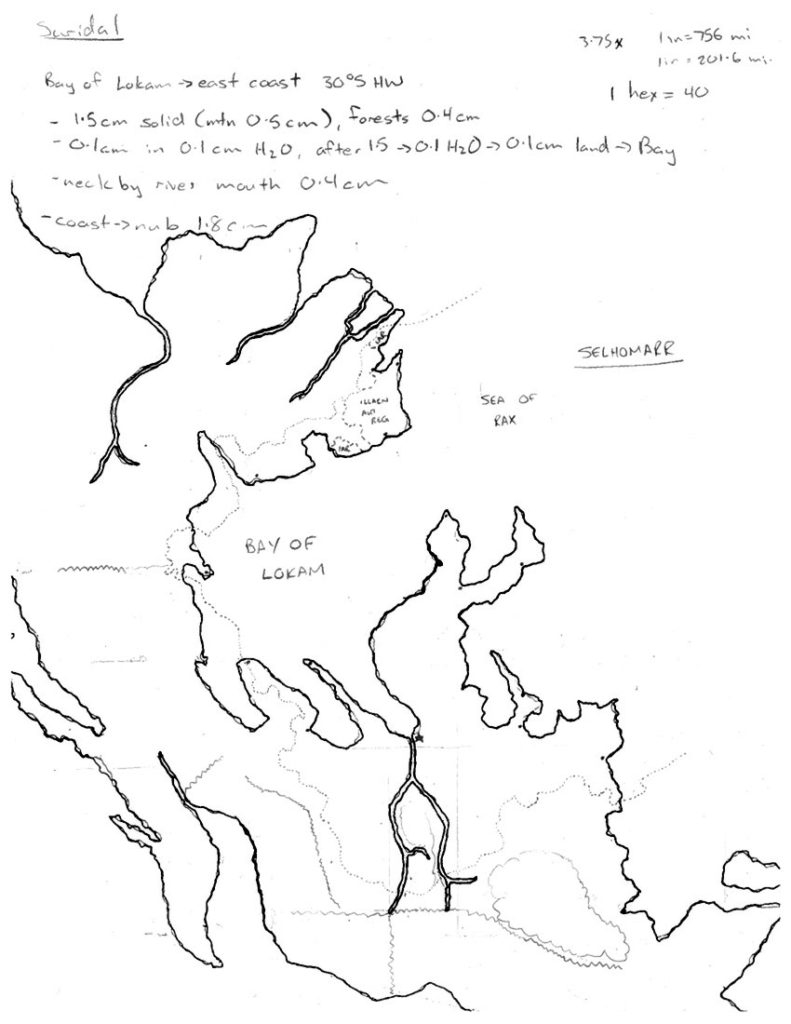 Suridal
3.75x 1in=756 mi
1in = 201.6 mi.
1 hex = 40
Bay of Lokam → east coast 30°S HW
- 1.5cm solid (mtn 0.5cm), forests 0.4cm
- 0.1cm in 0.1cm H₂O, after 1.5 → 0.1 H₂O → 0.1cm land → Bay
- neck by river mouth 0.4cm
- coast → nub 1.8cm
SELHOMARR
SEA OF
RAX
REG
BAY OF
LOKAM